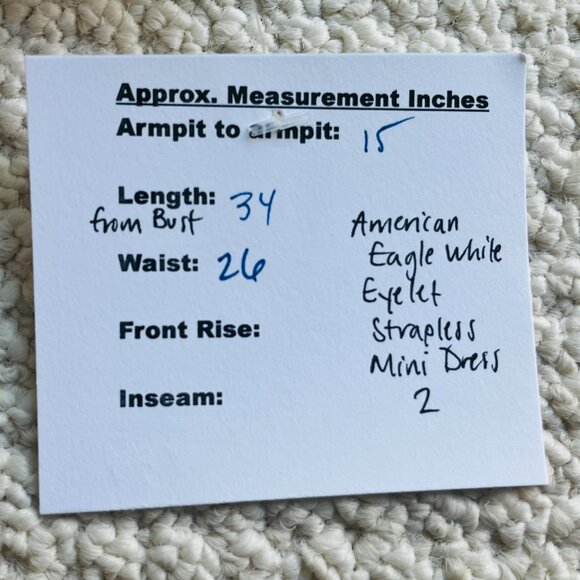 Approx. Measurement Inches
Armpit to armpit: 15
Length: 34
from Bust
Waist: 26
Front Rise:
Inseam:
American
Eagle White
Eyelet
Strapless
Mini Dress
2